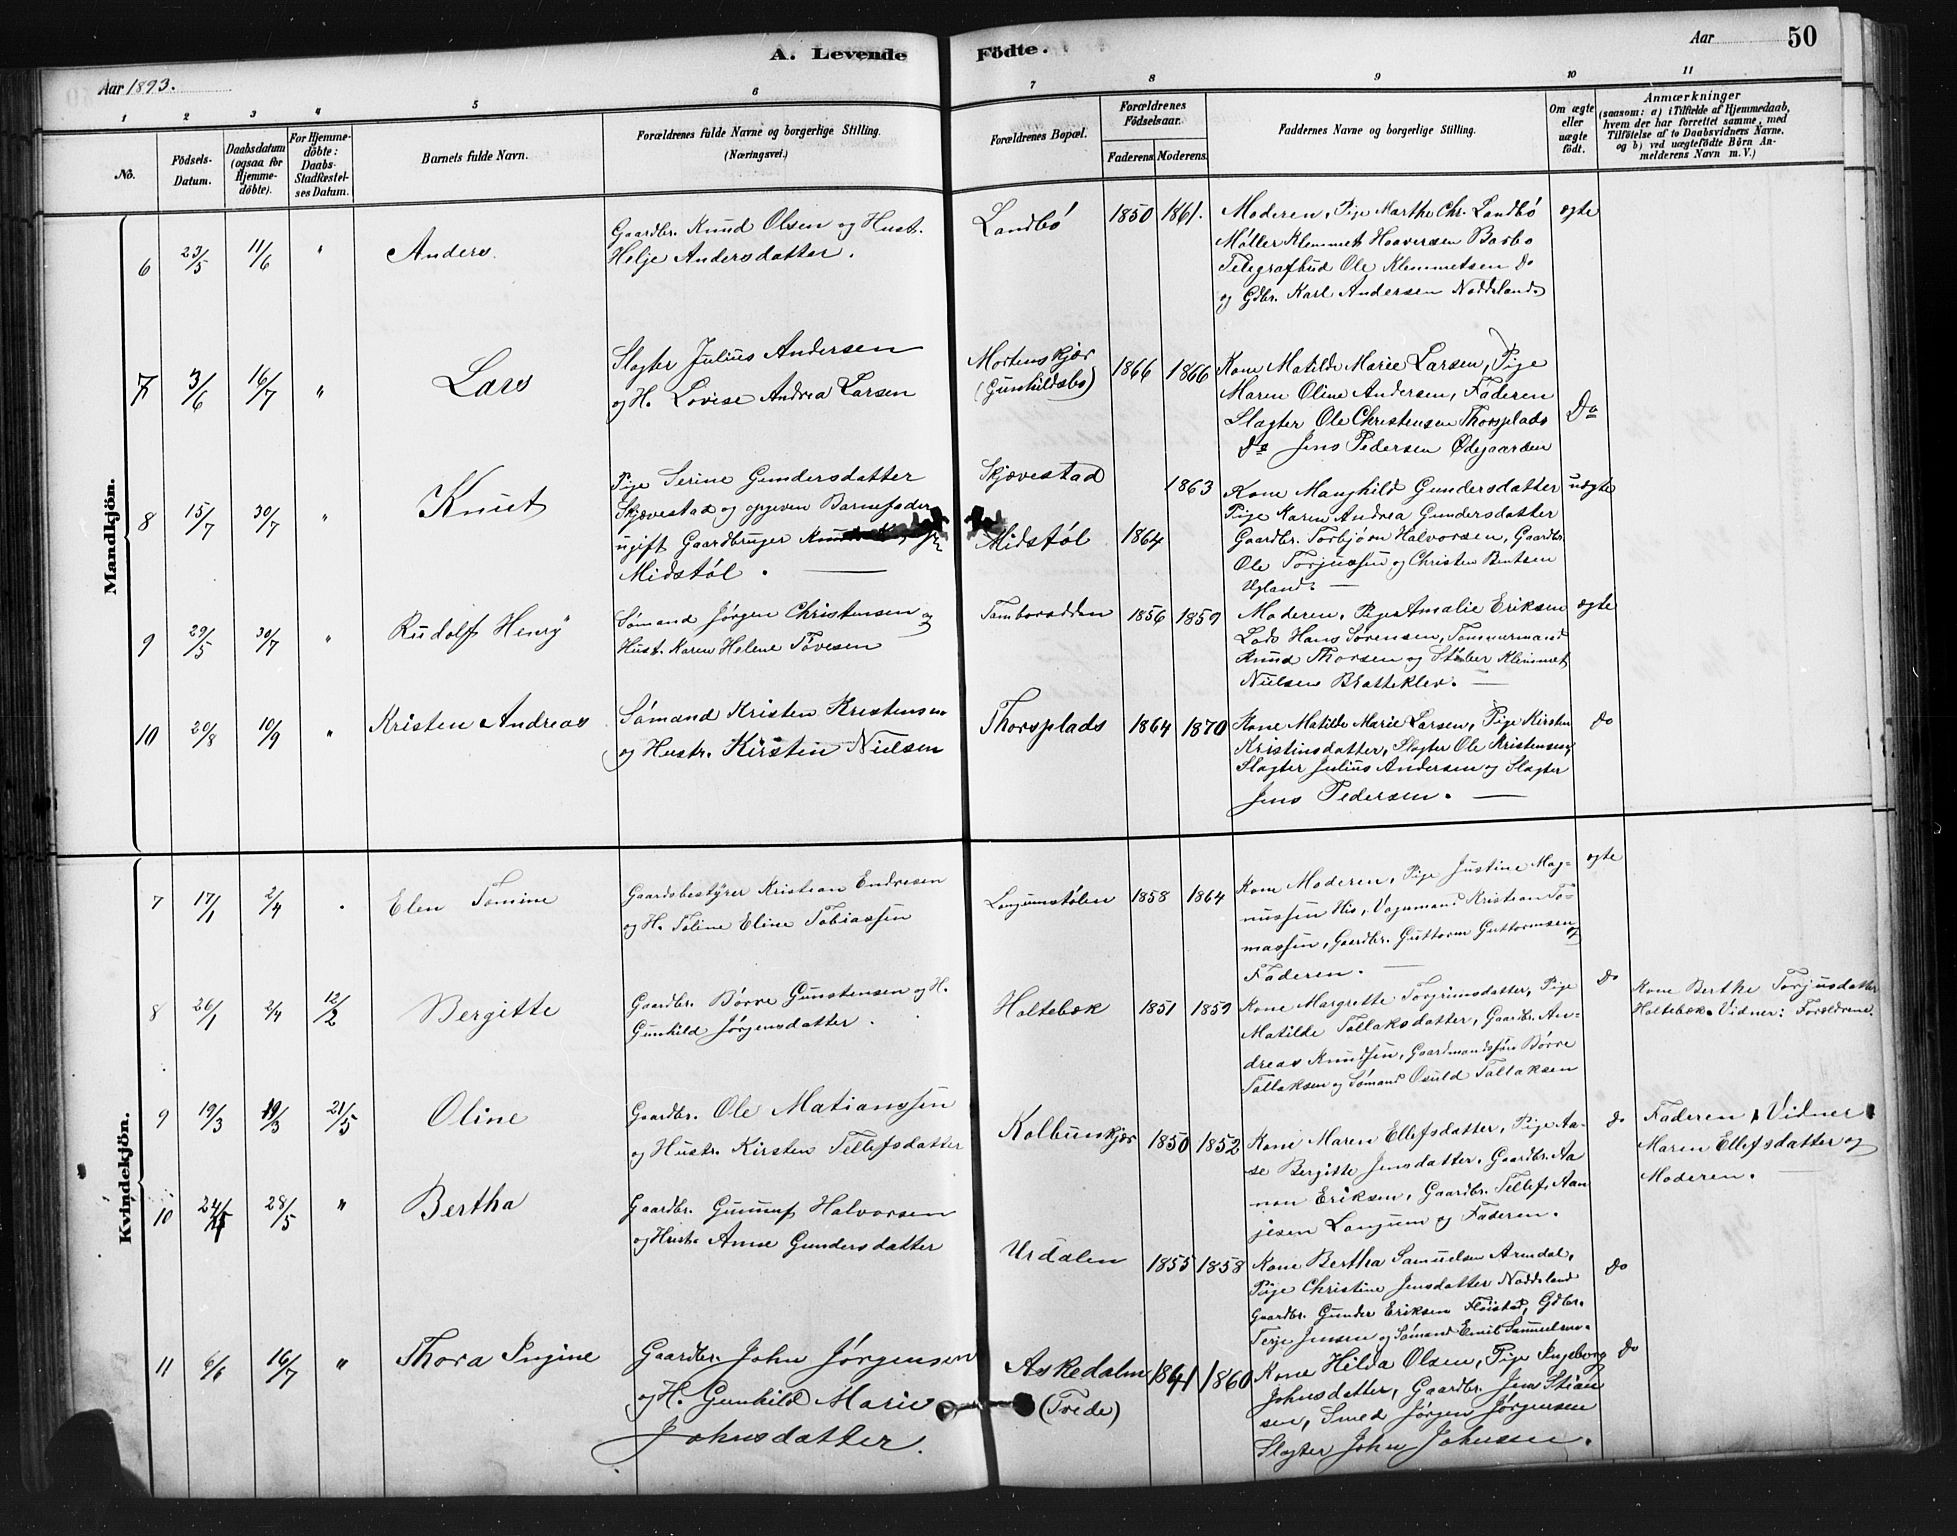 A. Levende Födte.
Aar 50
Aar 1893.
1 2 3 4 5 6 7 8 9 10 11
No.
Födsels-Datum.
Daabsdatum (ogsaa for Hjemmedöbte).
For Hjemmedöbte: Daabs-Stadfæstelses Datum.
Barnets fulde Navn.
Forældrenes fulde Navne og borgerlige Stilling.
(Næringsvei.)
Forældrenes Bopæl.
Forældrenes Födselsaar.
Faderens. Moderens.
Faddernes Navne og borgerlige Stilling.
Om ægte eller uægte födt.
Anmærkninger
(saasom: a) i Tilfælde af Hjemmedaab, hvem der har forrettet samme, med Tilföielse af to Daabsvidners Navne, og b) ved uægtefödte Börn Anmelderens Navn m. V.)
Mandkjön.
6 23/5 11/6 " Anders.
Gaardbr. Knud Olsen og Hust.
Helje Andersdatter.
Landbö 1850 1861.
Moderen, Pige Marthe Chr. Landbö
Møller Klemmet Haaversen Barbo
Telegrafbud Ole Klemmetsen Do
og Gdbr. Karl Andersen Noddeland.
ægte
7 3/6 16/7 " Lars
Slagter Julius Andersen
og H. Lovise Andrea Larsen
Mortenskjær
(Gunhildsbo)
1866 1866
Kone Matilde Marie Larsen, Pige
Maren Oline Andersen, Faderen
Slagter Ole Christensen Thorsplads
Do Jens Pedersen Ødegaarden
Do
8 15/7 30/7 " Knut
Pige Serine Gundersdatter
Skjævestad og opgiven Barnefader
ugift Gaardbruger
Midstøl.
Skjævestad 1863
Midstøl 1864
Kone Manghild Gundersdatter
Pige Karen Andrea Gundersdatter
Gaardbr. Torbjørn Halvorsen, Gaardbr.
Ole Torjussen og Christen Bentsen
Ugland.
uægte
9 29/5 30/7 " Rudolf Henry
Sømand Jørgen Christensen og
Hust. Karen Helene Tovesen
Tamborodden 1856 1859
Moderen, Pige Amalie Eriksen
Lods Hans Sørensen, Tømmermand
Knud Thorsen og Støber Klemmet
Nielsen Brattekler.
ægte
10 20/8 10/9 " Kristen Andreas
Sømand Kristen Kristensen
og Hustr. Kirsten Nielsen
Thorsplads 1864 1870
Kone Matilde Marie Larsen, Pige Kirsten
Kristinsdatter, Slagter Ole Kristensen,
Slagter Julius Andersen og Slagter
Jens Pedersen.
Do
Kvindekjön.
7 17/1 2/4 Elen Tomine
Gaardsbestyrer Kristian Endresen
og H. Toline Eline Tobiassen
Langumstølen 1858 1864
Kone Moderen, Pige Justine Mag-
nussen His, Vognmand Kristian To-
massen, Gaardbr. Guttorm Guttormsen og
Faderen.
ægte
8 26/1 2/4 12/2 Bergitte
Gaardbr. Børre Gunstensen og H.
Gunhild Jørgensdatter.
Holtebæk 1851 1859
Kone Margrette Torgrimsdatter, Pige
Matilde Tallaksdatter, Gaardbr. An-
dreas Knudsen, Gaardmandssøn Børre
Tallaksen og Sømand Osuld Tallaksen
Do
Kone Berthe Torjusdatter
Holtebæk. Vidner: Forældrene.
9 19/3 19/3 21/5 Oline
Gaardbr. Ole Matiassen
og Hustr. Kirsten Tellefsdatter
Kolbunskjær 1850 1852
Kone Maren Ellefsdatter, Pige Aa-
se Bergitte Jensdatter, Gaardbr. Aa
non Eriksen, Gaardbr. Tellef Aan
jesen Langum og Faderen.
Do
Faderen, Vidner
Maren Ellefsdatter og
Moderen.
10 24/ 28/5 " Bertha
Gaardbr. Gunnuf Halvorsen
og Hustr. Anne Gundersdatter
Urdalen 1855 1858
Kone Bertha Samuelsen Arendal,
Pige Christine Jensdatter Noddeland
Gaardbr. Gunder Eriksen Fløistad, Gdbr.
Terje Jensen og Sømand Emil Samuelsen.
Do
11 6/6 16/7 " Thora Ingine
Gaardbr. John Jørgensen
og H. Gunhild Marie
Johnsdatter.
Askedalen
(Trede)
1841 1860
Kone Hilda Olsen, Pige Ingeborg
Johnsdatter, Gaardbr. Jens Stian
sen, Smed Jørgen Jørgensen
Slagter John Johnsen.
Do